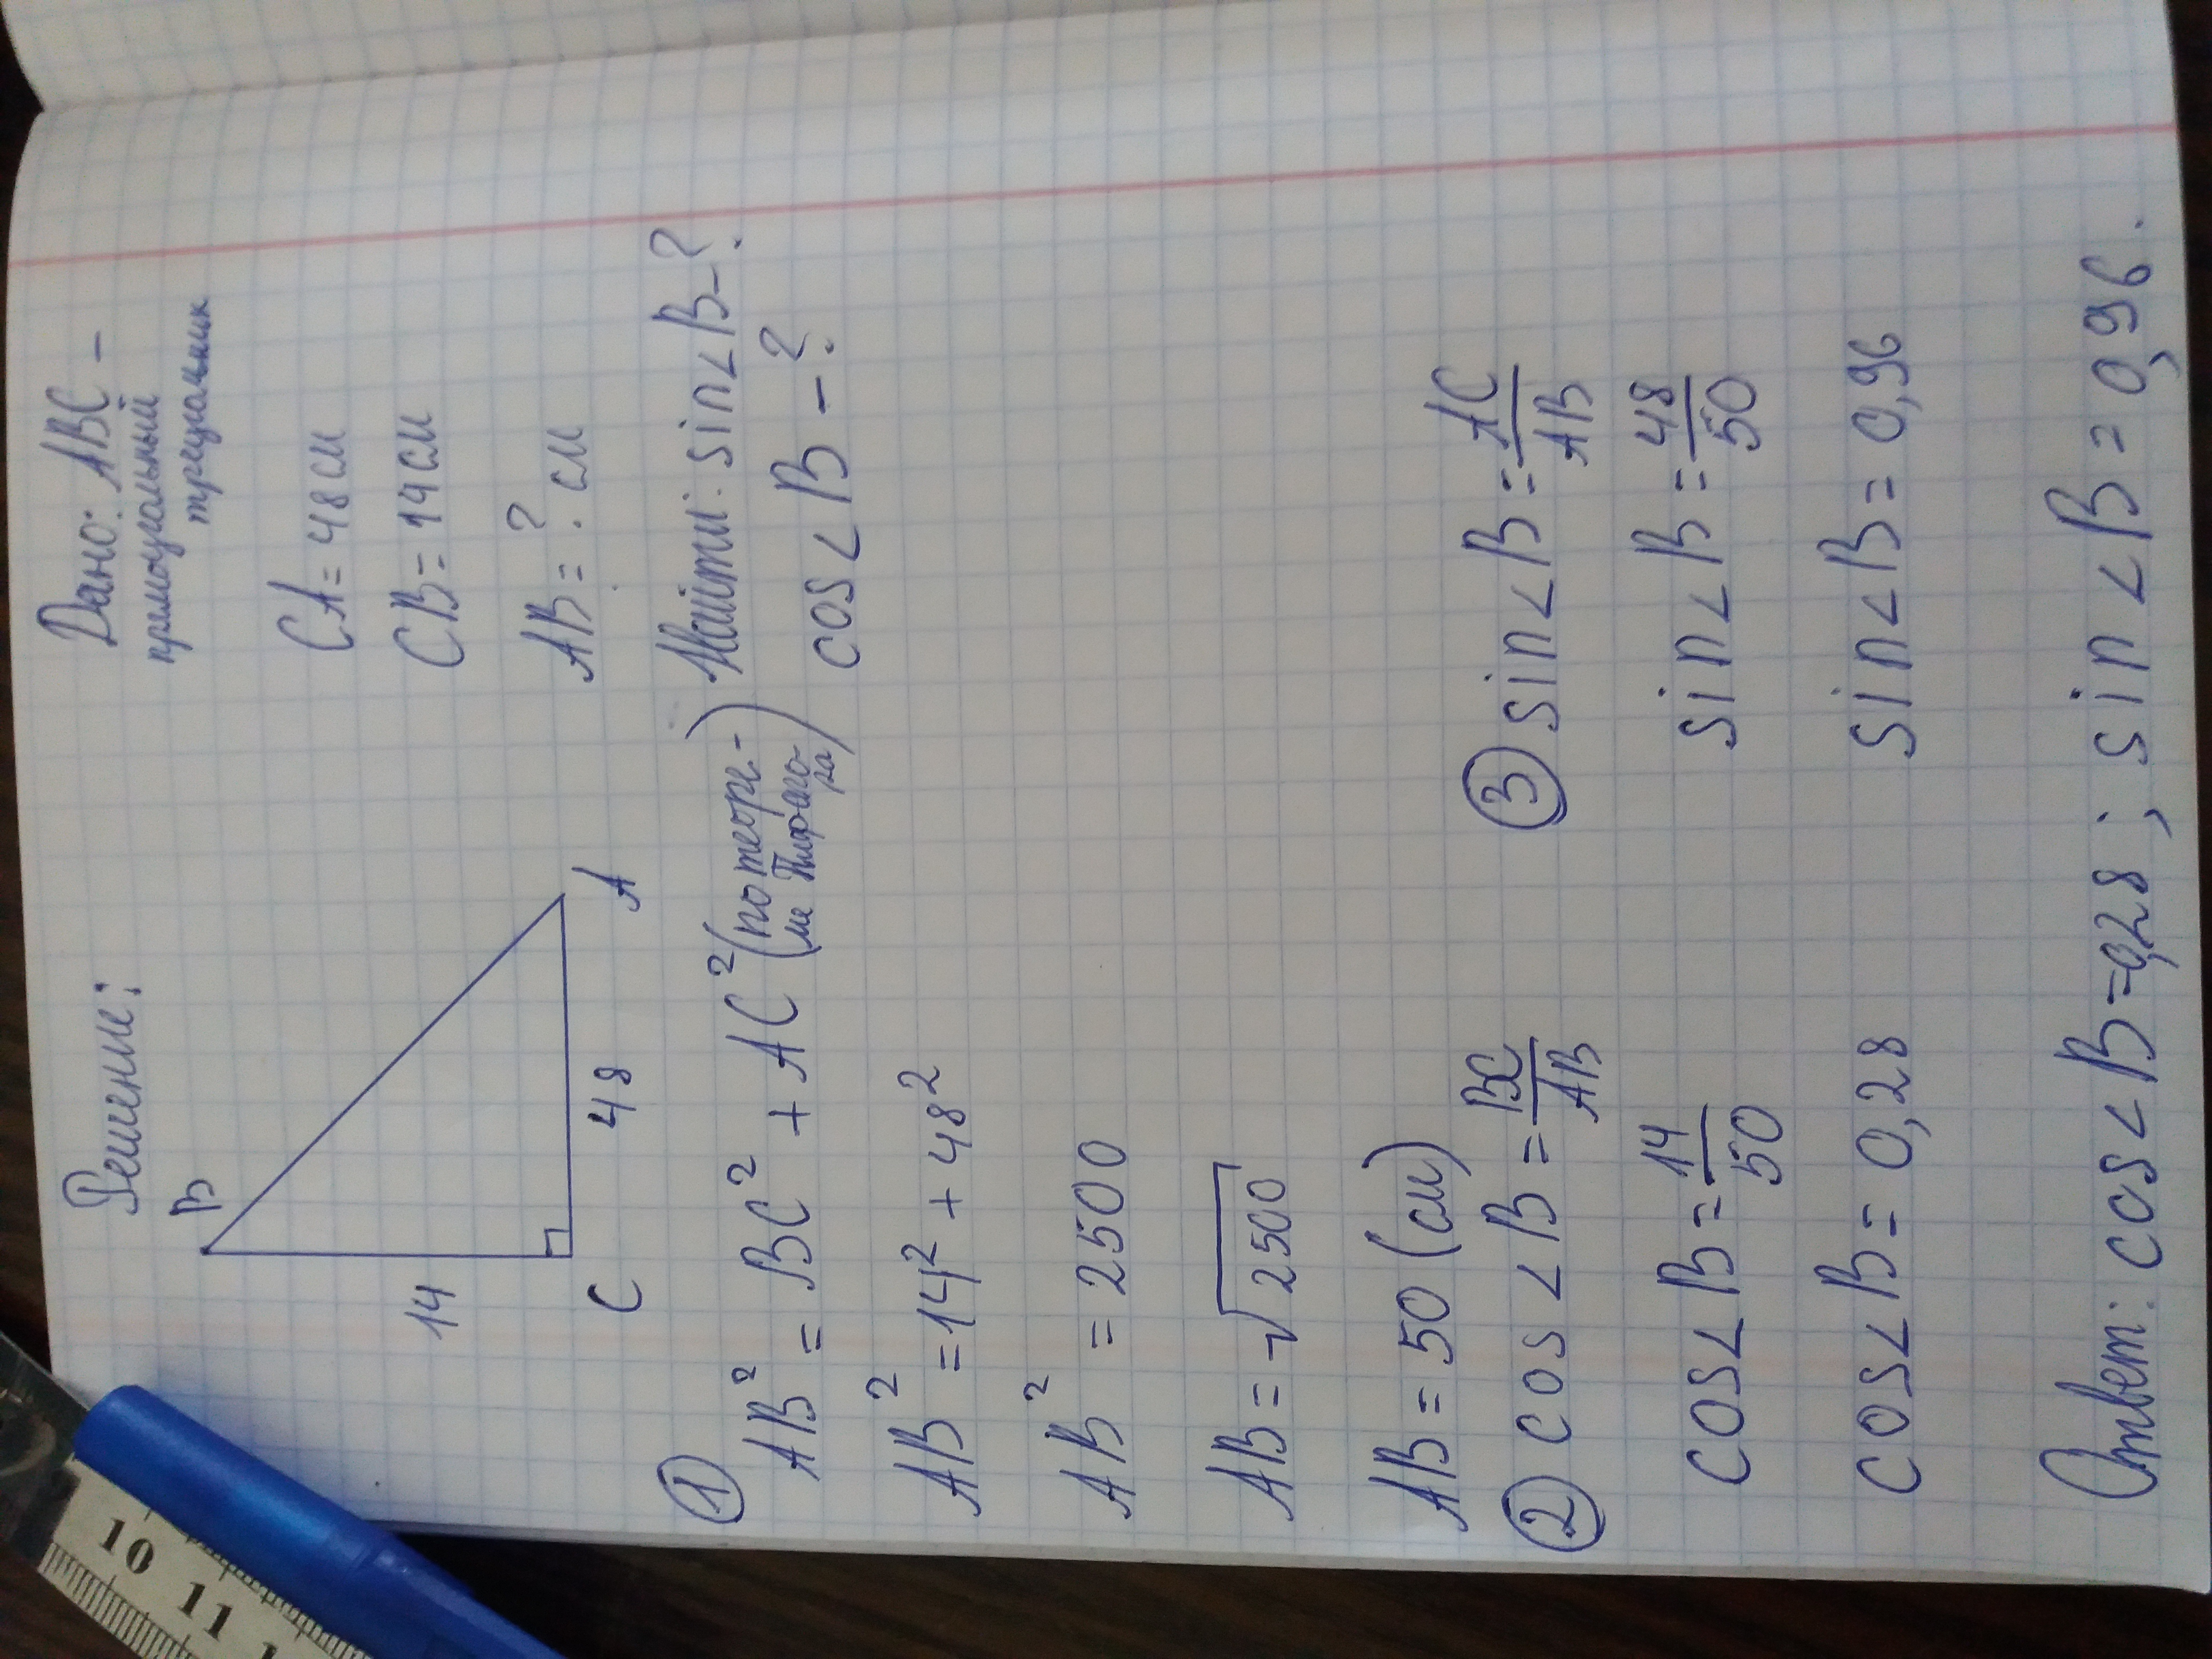 Решение:
Дано: ABC –
прямоугольный
треугольник
CA = 48 см
CB = 14 см
AB = ? см
Найти: sin∠B – ?
cos∠B – ?
B
14
C
48
A
① AB² = BC² + AC² (по теоре-
ме Пифаго-
ра)
AB² = 14² + 48²
AB² = 2500
AB = √2500
AB = 50 (см)
② cos∠B = BC/AB
cos∠B = 14/50
cos∠B = 0,28
③ sin∠B = AC/AB
sin∠B = 48/50
sin∠B = 0,96
Ответ: cos∠B = 0,28 ; sin∠B = 0,96.
10
11